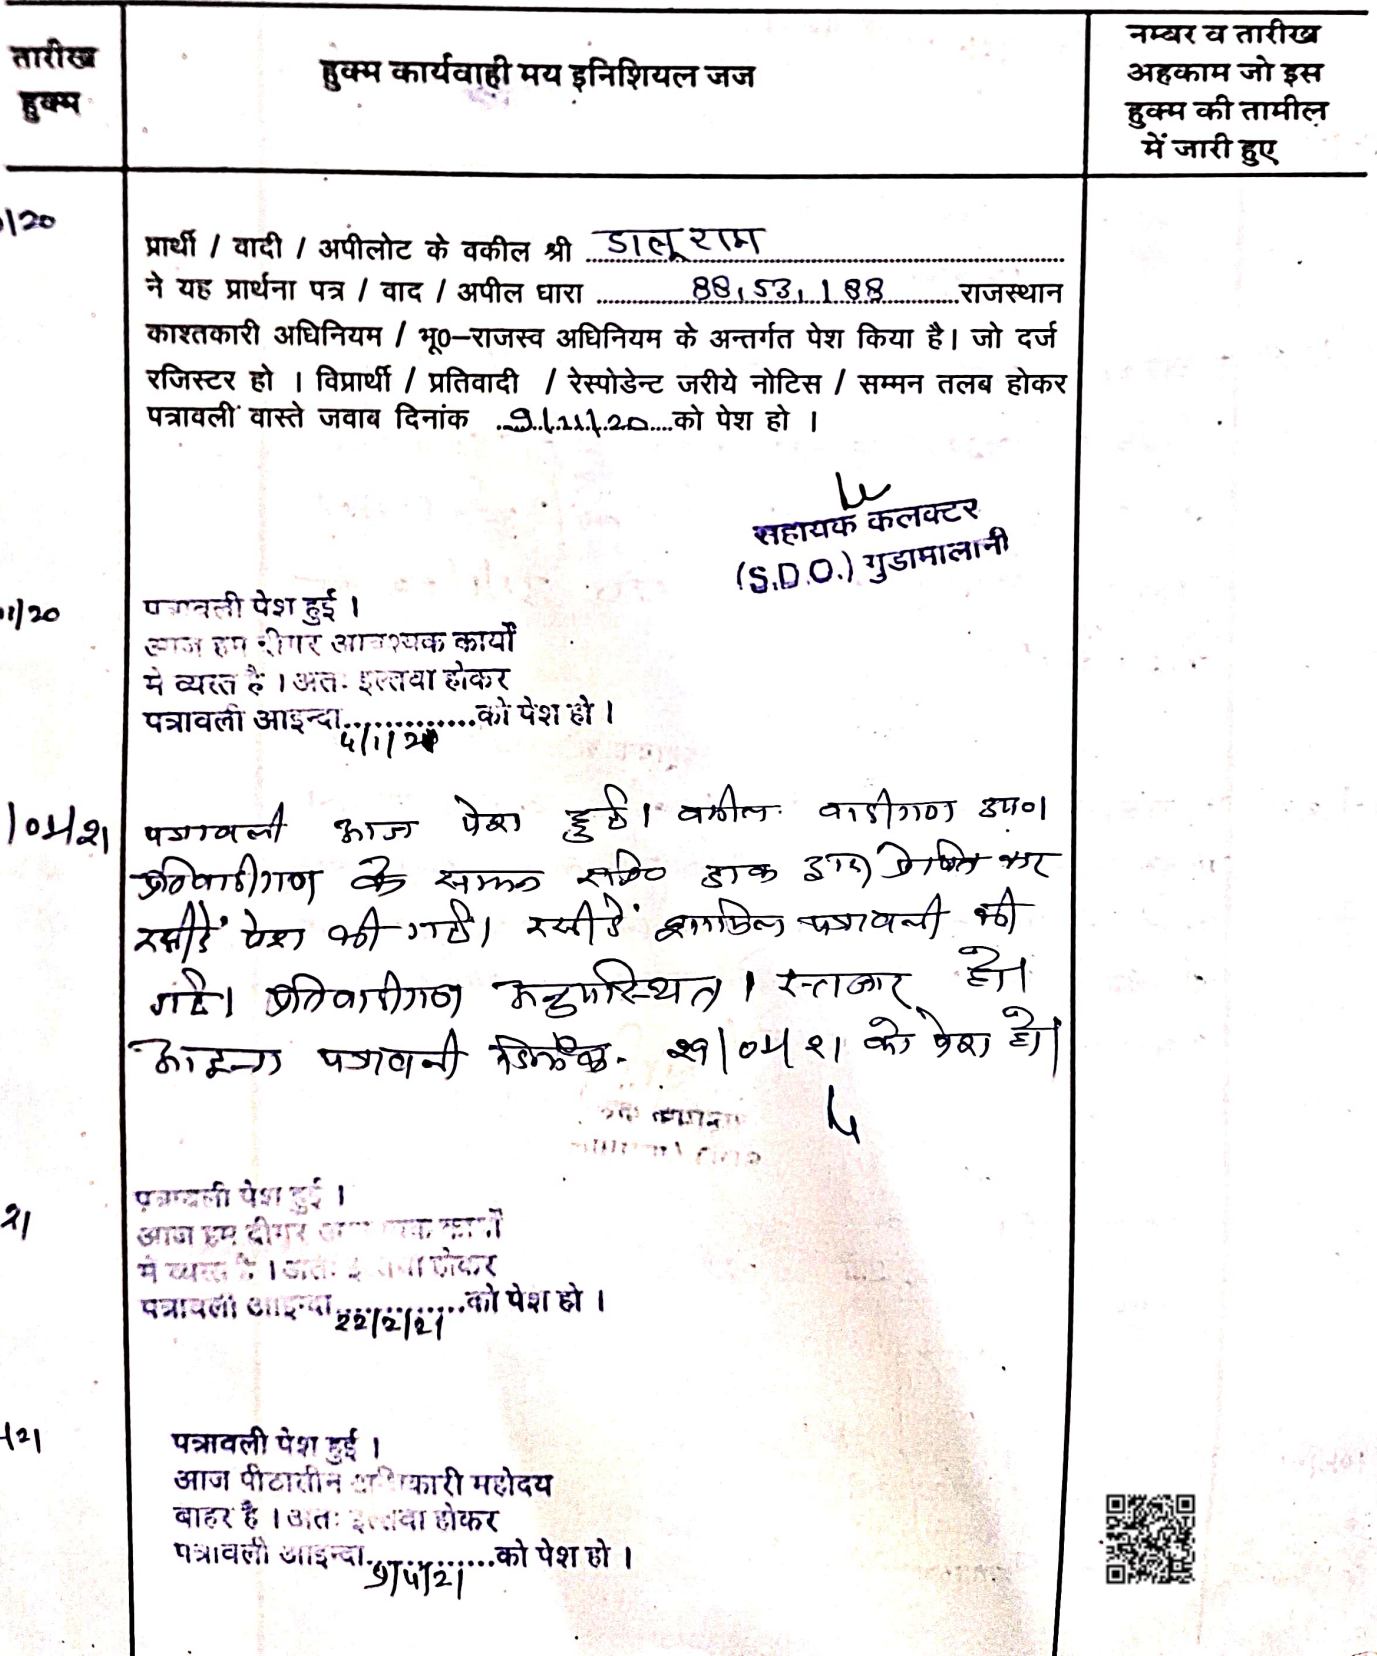 तारीख
हुक्म
हुक्म कार्यवाही मय इनिशियल जज
नम्बर व तारीख
अहकाम जो इस
हुक्म की तामील
में जारी हुए
/20
प्रार्थी / वादी / अपीलोट के वकील श्री डालूराम
ने यह प्रार्थना पत्र / वाद / अपील धारा 88,53,188 राजस्थान
काश्तकारी अधिनियम / भू0-राजस्व अधिनियम के अन्तर्गत पेश किया है। जो दर्ज
रजिस्टर हो । विप्रार्थी / प्रतिवादी / रेस्पोडेन्ट जरीये नोटिस / सम्मन तलब होकर
पत्रावली वास्ते जवाब दिनांक 9/11/20 को पेश हो ।
सहायक कलक्टर
(S.D.O.) गुडामालानी
11/20
पत्रावली पेश हुई ।
आज हम दीगर आवश्यक कार्यों
मे व्यस्त है । अतः इल्तवा होकर
पत्रावली आइन्दा..............को पेश हो ।
पत्रावली आज पेश हुई। वकील वादीगण उप०।
प्रतिवादीगण के सम्मन डाक द्वारा प्रेषित कर
रसीदें पेश की गई। रसीदें शामिल पत्रावली की
गई। प्रतिवादीगण अनुपस्थित। इन्तजार हो।
आइन्दा पत्रावली दिनांक को पेश हो।
21
पत्रावली पेश हुई ।
आज हम दीगर कार्यों
मे व्यस्त है । अतः होकर
पत्रावली आइन्दा.............को पेश हो ।
22/2/21
21
पत्रावली पेश हुई ।
आज पीठासीन अधिकारी महोदय
बाहर है । अतः इल्तवा होकर
पत्रावली आइन्दा.............को पेश हो ।